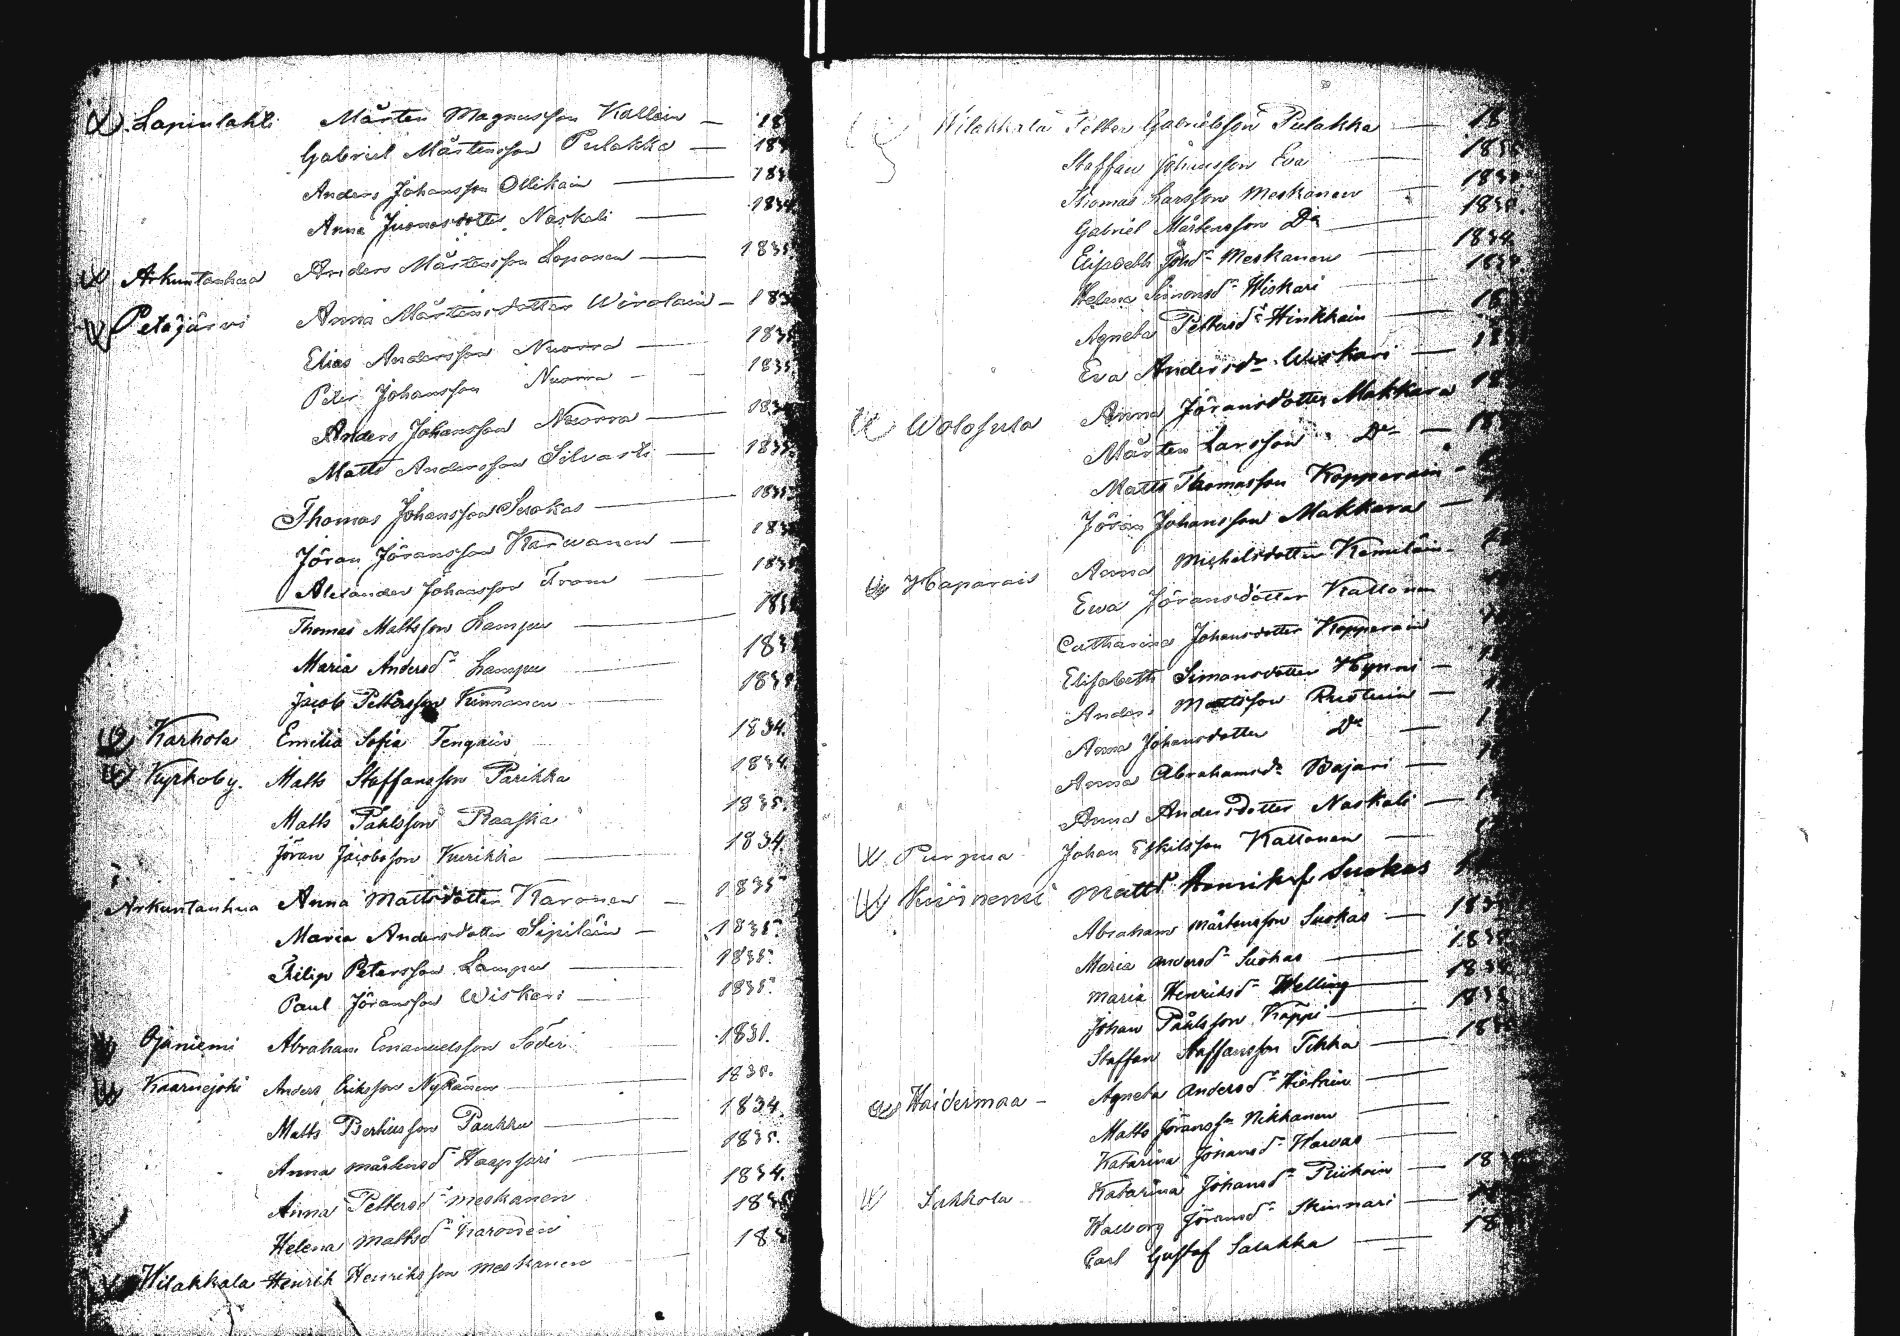 Lapinlahti Mårten Magnusson Kallain — 18
Gabriel Mårtensson Pulakka — 183
Anders Johansson Ollikain — 183
Anna Juonasdotter Naskali — 1834
Arkuntanhua Anders Mårtensson Loponen — 1835
Petäjärvi Anna Mårtensdotter Wirolain — 183
Elias Andersson Nuorra — 1835
Peter Johansson Nuorra — 1835
Anders Johansson Nuorra — 183
Matts Andersson Silvasti — 1835
Thomas Johansson Suokas — 1835
Jöran Jöransson Karwanen — 183
Alexander Johansson From — 1835
Thomas Mattsson Lampu — 183
Maria Andersdr Lampu — 183
Jacob Pettersson Kinnanen — 183
Karhola Emilia Sofia Tengain 1834.
Kyrkoby. Matts Staffansson Parikka 1834
Matts Påhlsson Raaska 1835.
Jöran Jacobsson Kurikka — 1834.
Arkuntanhua Anna Mattsdotter Karonen — 1835
Maria Andersdotter Sipiläin — 1835
Filip Petersson Lampu — 1835
Paul Jöransson Wiskari — 1835
Ojaniemi Abraham Emanuelsson Söder 1831.
Kaarnejoki Anders Eriksson Nykänen 1835.
Matts Bertusson Paukku — 1834
Anna Mårtensdr Haapsari — 1835.
Anna Pettersdr Meskanen 1834.
Helena Mattsdr Karonen 1835
Wilakkala Henrik Henriksson Meskanen 183
Wilakkala Petter Gabrielsson Pulakka — 18
Staffan Johansson Eva — 183
Thomas Larsson Meskanen — 183
Gabriel Mårtensson Do — 183
Elisabeth Johdr Meskanen — 1834
Helena Simonsdr Wiskari 183
Agneta Pettersdr Hinkkain — 18
Eva Andersdr Wiskari — 18
Wolosula Anna Jöransdotter Makkara 18
Mårten Larsson Do — 18
Matts Thomasson Kopperain —
Jöran Johansson Makkara —
Haparais Anna Michelsdotter Kemiläin
Ewa Jöransdotter Kallonen
Catharina Johansdotter Kopperain
Elisabeth Simonsdotter Hynni —
Anders Mattsson Rustuin —
Anna Johansdotter Do —
Anna Abrahamsdr Bajari —
Anna Andersdotter Naskali —
Purpua Johan Eskilsson Kallonen —
Kiiniemi Matts Henriksf Suokas
Abraham Mårtensson Suokas — 183
Maria Andersdr Suokas — 183
Maria Henriksdr Welling — 183
Johan Påhlsson Käppi — 183
Staffan Staffansson Tikka — 183
Haidermaa — Agneta Andersdr Hietain —
Matts Jöransson Nikkanen —
Katarina Johansdr Harwas —
Sakkola Katarina Johansdr Riikoin — 183
Walborg Jöransdr Skinnari —
Carl Gustaf Salakka — 18